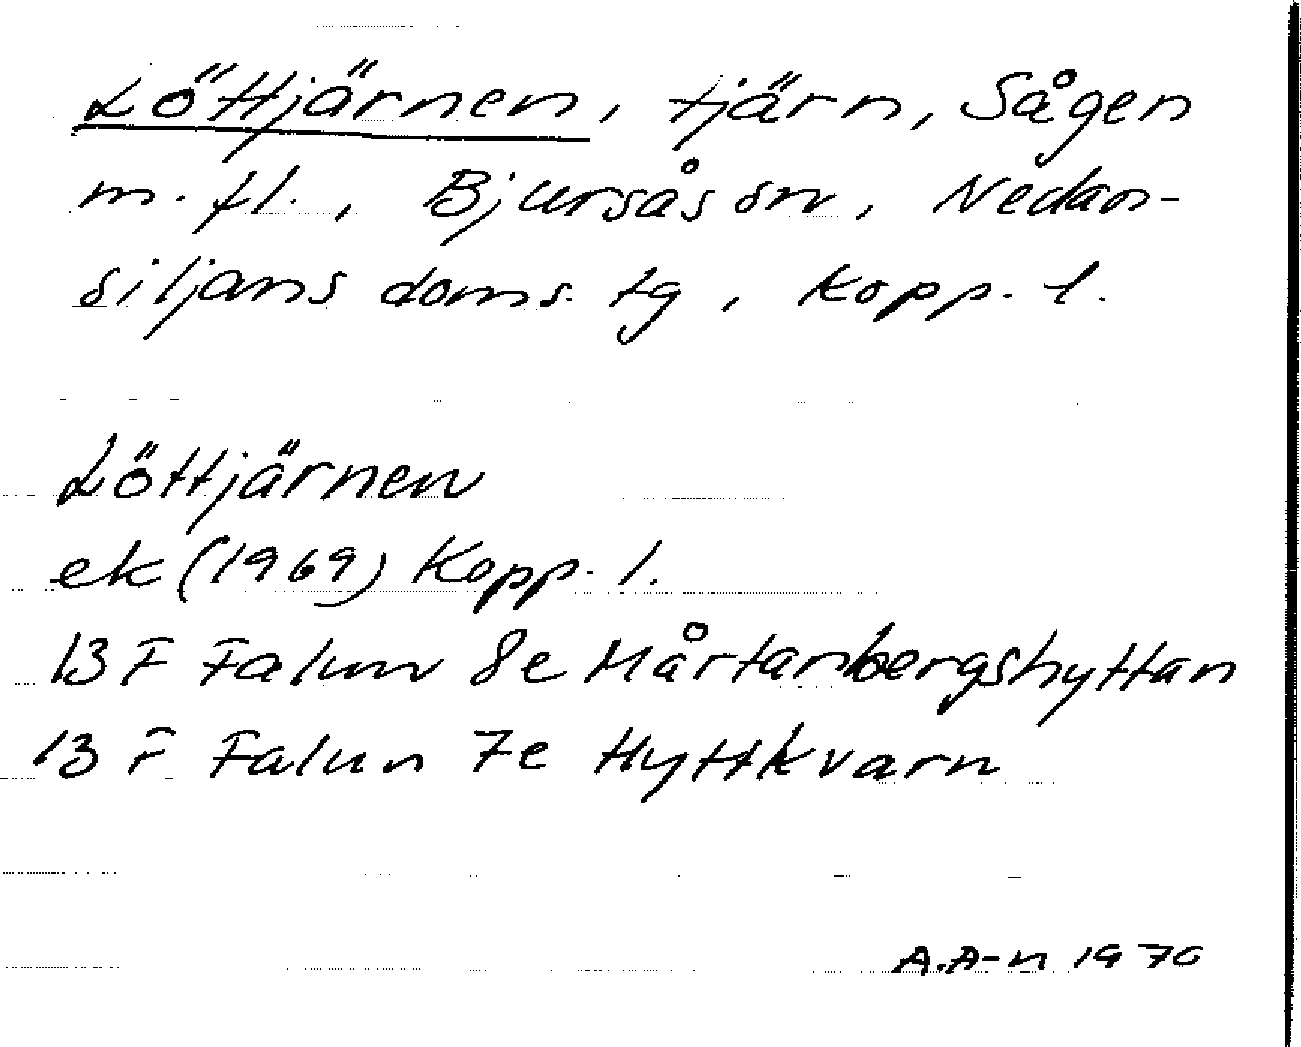 Löttjärnen, tjärn, Sågen
m. fl., Bjursås sn, Nedan-
siljans doms. tg, Kopp. l.
Löttjärnen
ek (1969) Kopp. l.
13 F Falun 8e Mårtanbergshyttan
13 F Falun 7e Hyttkvarn
A.A-n 1970